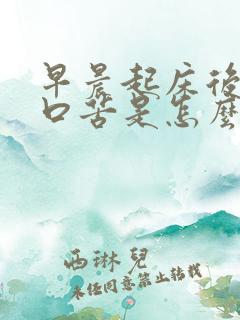 早晨起床後
口苦是怎麼
西琳兒
未经同意禁止转载